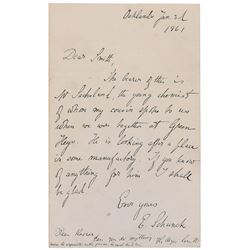 Oaklands Jan. 2d
1861
Dear Smith,
The bearer of this is
Mr the young chemist
of whom my cousin spoke to us
when we were together at Green
Heys. He is looking after a place
in some manufactory. If you know
of anything for him I shall
be glad
Ever yours
E. Schunck
Can you do anything